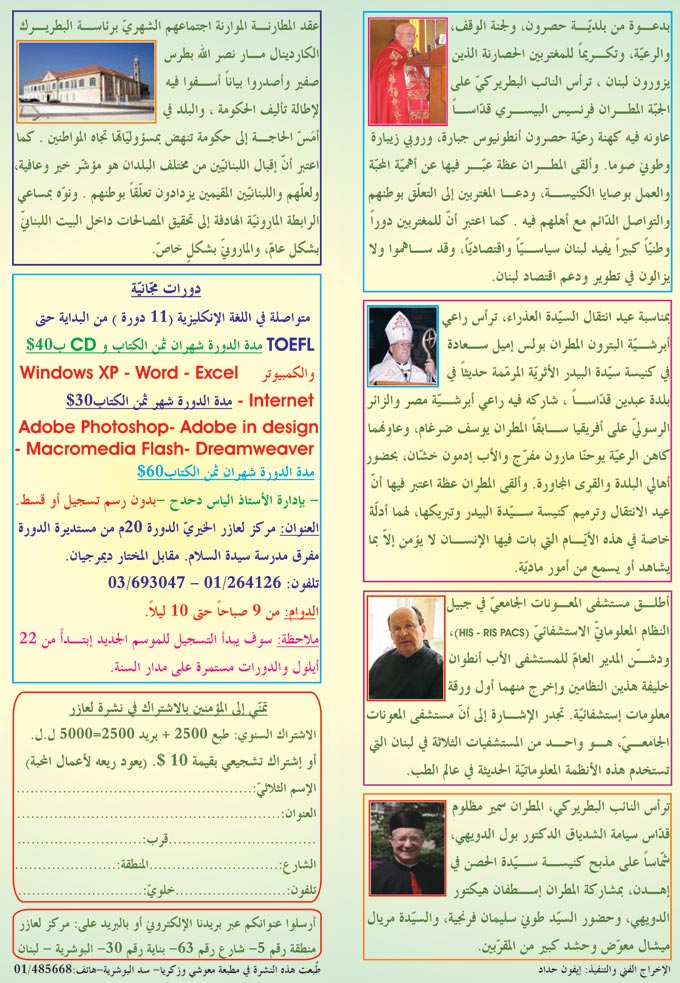 بدعـــوة من بلديّـــة حصرون، ولجنة الوقف،
والرعيّة، وتكـــريماً للمغتربين الحصارنة الذين
يزورون لبنان ، ترأس النائب البطريركيّ على
الجبّة المطـــران فرنسيس البيسري قدّاســـاً
عاونه فيه كهنة رعيّة حصرون أنطونيوس جبارة، وروبي زيبارة
وطوني صوما. وألقى المطـــران عظة عبّـــر فيها عن أهميّة المحبّة
والعمل بوصايا الكنيســـة، ودعـــا المغتربين إلى التعلّق بوطنهم
والتواصل الدّائم مع أهلهم فيه . كما اعتبر أنّ للمغتربين دوراً
وطنيّاً كبيراً يفيد لبنان سياسيّـــاً واقتصاديّاً، وقد ساهموا ولا
يزالون في تطوير ودعم اقتصاد لبنان.
بمناسبة عيد انتقال السيّدة العذراء، ترأس راعي
أبرشيّـــة البترون المطران بولس إميل ســـعادة
في كنيسة سيّدة البيدر الأثريّة المرمّمة حديثاً في
بلدة عبدين قدّاســـاً ، شاركه فيه راعي أبرشيّـــة مصر والزائر
الرسوليّ على أفريقيا سابقـــاً المطران يوسف ضرغام، وعاونهما
كاهن الرعيّة يوحنّا مارون مفرّج والأب إدمون خشّان، بحضور
أهالي البلدة والقرى المجاورة. وألقى المطران عظة اعتبر فيها أنّ
عيد الانتقال وترميم كنيسة ســـيّدة البيدر وتبريكها، لهما أدلّة
خاصة في هذه الأيّـــام التي بات فيها الإنســـان لا يؤمن إلاّ بما
يشاهد أو يسمع من أمور ماديّة.
أطلـــق مستشفى المعـــونات الجامعيّ في جبيل
النظام المعلوماتيّ الاستشفائيّ (HIS - RIS PACS)،
ودشّـــن المدير العامّ للمستشفى الأب أنطوان
خليفة هذين النظامين وإخرج منهما أول ورقة
معلومات إستشفائيّة. تجدر الإشارة إلى أنّ مستشفى المعونات
الجامعـــيّ، هـــو واحـــد من المستشفيات الثلاثة في لبنان التي
تستخدم هذه الأنظمة المعلوماتيّة الحديثة في عالم الطب.
ترأس النائب البطريركي، المطران سمير مظلوم
قدّاس سيامة الشدياق الدكتور بول الدويهي،
شمّاساً على مذبح كنيســـة سيّدة الحصن في
إهـدن، بمشاركة المطران إسطفان هيكتور
الدويهي، وحضور السيّد طوني سليمان فرنجية، والسيّدة مريال
ميشال معوّض وحشد كبير من المقرّبين.
الإخراج الفني والتنفيذ: إيفون حداد
عقد المطارنـــة الموارنة اجتماعهم الشهريّ برئاســـة البطريـــرك
الكاردينال مـــار نصر الله بطرس
صفير وأصدروا بياناً أســـفوا فيه
لإطالة تأليف الحكومة ، والبلد في
أمَسّ الحاجـــة إلى حكومة تنهض بمسؤوليّاتها تجاه المواطنين . كما
اعتبر أنّ إقبال اللبنانيّين من مختلف البلدان هو مؤشّر خير وعافية،
ولعلّهم واللبنانيّين المقيمين يزدادون تعلّقاً بوطنهم . ونوّه بمساعي
الرابطة المارونيّة الهادفة إلى تحقيق المصالحات داخل البيت اللبنانيّ
بشكل عامّ، والمارونيّ بشكلٍ خاصّ.
دورات مجّانيّة
متواصلة في اللغة الإنكليزية (11 دورة ) من البداية حتى
TOEFL مدة الدورة شهران ثمن الكتاب و CD ب40$
والكمبيوتر Windows XP - Word - Excel
Internet - مدة الدورة شهر ثمن الكتاب30$
Adobe Photoshop- Adobe in design
- Macromedia Flash- Dreamweaver
مدة الدورة شهران ثمن الكتاب60$
– بإدارة الأستاذ الياس دحدح –بدون رسم تسجيل أو قسط.
العنوان: مركز لعازر الخيريّ الدورة 20م من مستديرة الدورة
مفرق مدرسة سيدة السلام. مقابل المختار ديمرجيان.
تلفون: 01/264126 – 03/693047
الدوام: من 9 صباحاً حتى 10 ليلاً.
ملاحظة: سوف يبدأ التسجيل للموسم الجديد إبتـــدأً من 22
أيلول والدورات مستمرة على مدار السنة.
نتمنّى إلى المؤمنين بالاشتراك في نشرة لعازر
الاشتراك السنوي: طبع 2500 + بريد 2500=5000 ل.ل.
أو إشتراك تشجيعي بقيمة 10 $. (يعود ريعه لأعمال المحبة)
الإسم الثلاثيّ:..............................................
العنوان:..............................................
..............................قرب:..............................
الشارع:..............................المنطقة:....................
تلفون:..............................خلويّ:....................
أرسلوا عنوانكم عبر بريدنا الإلكترونيّ أو بالبريد على: مركز لعازر
منطقة رقم 5– شارع رقم 63– بناية رقم 30– البوشرية – لبنان
طُبعت هذه النشرة في مطبعة معوشي وزكريا– سد البوشرية–هاتف:01/485668